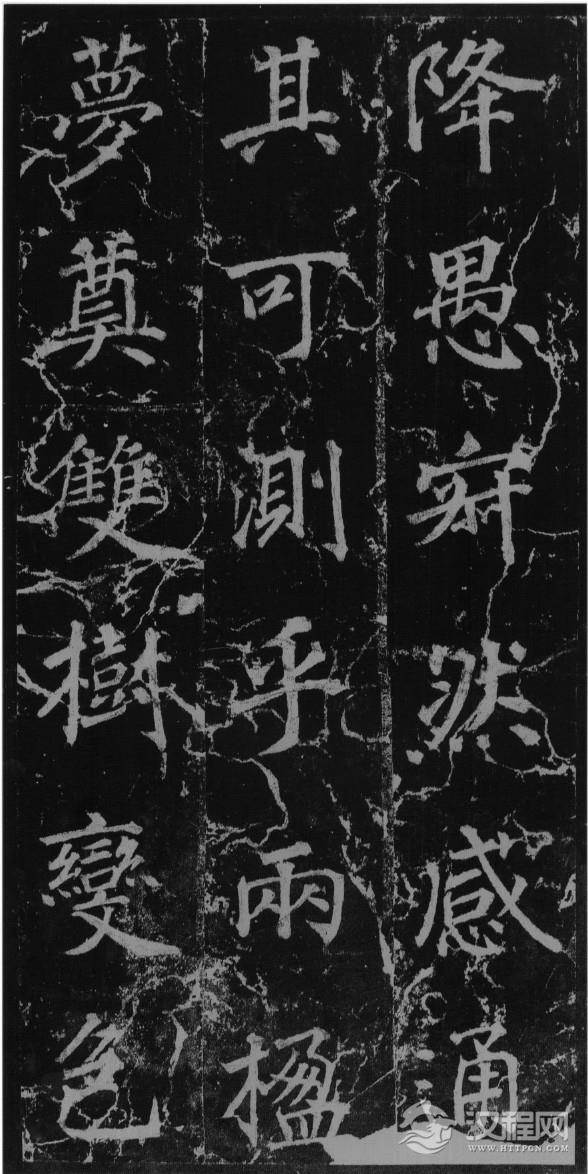 降愚寂然感通
其可測乎兩楹
夢奠雙樹變色
汉程网
WWW.HTTPCN.COM